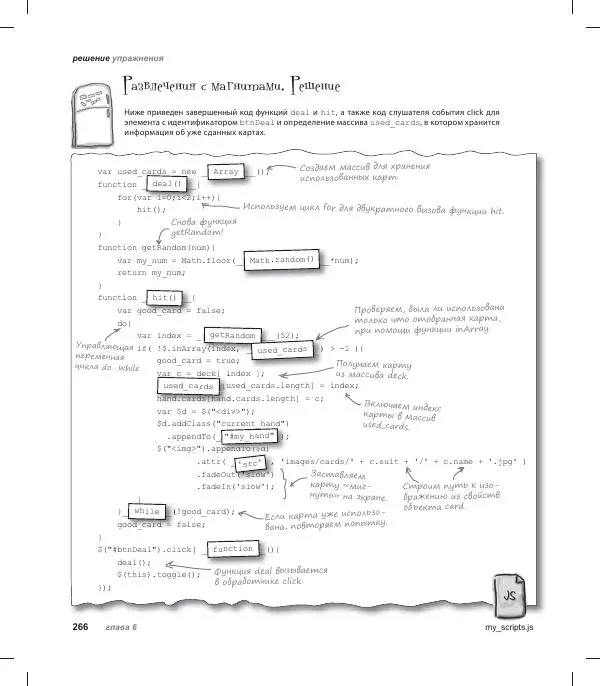 решение упражнения
Развлечения с магнитами. Решение
Ниже приведен завершенный код функций deal и hit, а также код слушателя события click для
элемента с идентификатором btnDeal и определение массива used_cards, в котором хранится
информация об уже сданных картах.
var used_cards = new _ Array _ ();
Создаем массив для хранения
использованных карт.
function _ deal() _ {
for(var i=0;i<2;i++){
hit();
Используем цикл for для двукратного вызова функции hit.
}
}
Снова функция
getRandom!
function getRandom(num){
var my_num = Math.floor(_ Math.random() _*num);
return my_num;
}
function _ hit() _ {
var good_card = false;
do{
Управляющая
переменная
цикла do...while
var index = _ getRandom _ (52);
if( !$.inArray(index, _ used_cards _ ) > -1 ){
Проверяем, была ли использована
только что отобранная карта,
при помощи функции inArray.
good_card = true;
var c = deck[ index ];
Получаем карту
из массива deck.
used_cards [used_cards.length] = index;
hand.cards[hand.cards.length] = c;
Включаем индекс
карты в массив
used_cards.
var $d = $("<div>");
$d.addClass("current_hand")
.appendTo(_ "#my_hand" _);
$("<img>").appendTo($d)
.attr( _ 'src' _ , 'images/cards/' + c.suit + '/' + c.name + '.jpg' )
.fadeOut('slow')
.fadeIn('slow');
Заставляем
карту «миг-
нуть» на экране.
Строим путь к изо-
бражению из свойств
объекта card.
}
}_ while _ (!good_card);
Если карта уже использо-
вана, повторяем попытку.
good_card = false;
}
$("#btnDeal").click( _ function _ (){
deal();
$(this).toggle();
Функция deal вызывается
в обработчике click.
});
JS
266 глава 6
my_scripts.js